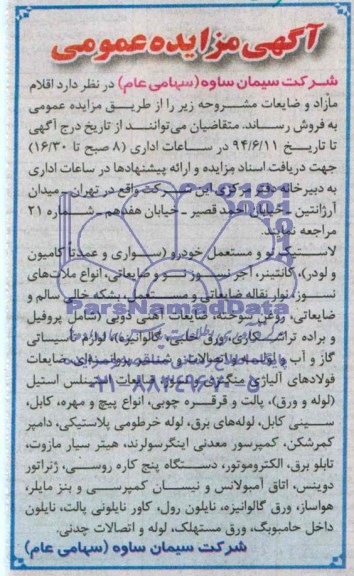 آگهی مزایده عمومی
شرکت سیمان ساوه (سهامی عام) در نظر دارد اقلام
مازاد و ضایعات مشروحه زیر را از طریق مزایده عمومی
به فروش رساند. متقاضیان می‌توانند از تاریخ درج آگهی
تا تاریخ ۹۴/۶/۱۱ در ساعات اداری (۸ صبح تا ۱۶/۳۰)
جهت دریافت اسناد مزایده و ارائه پیشنهادها در ساعات اداری
به دبیرخانه دفتر مرکزی این شرکت واقع در تهران ـ میدان
آرژانتین ـ خیابان احمد قصیر ـ خیابان هفدهم ـ شماره ۲۱
مراجعه نمایند.
لاستیک نو و مستعمل خودرو (سواری و عمدتاً کامیون
و لودر)، کانتینر، آجر نسوز نو و ضایعاتی، انواع ملات‌های
نسوز، نوار نقاله ضایعاتی و مستعمل، بشکه خالی سالم و
ضایعاتی، روغن سوخته، ضایعات آهنی ذوبی (شامل پروفیل
و براده تراشکاری، ورق حلبی، گالوانیزه)، لوازم تأسیساتی
گاز و آب و لوله و اتصالات، ضایعات
فولادهای آلیاژی منگنزی و نسوز، ضایعات استنلس استیل
(لوله و ورق)، پالت و قرقره چوبی، انواع پیچ و مهره، کابل،
سینی کابل، لوله‌های برق، لوله خرطومی پلاستیکی، دامپر
کمرشکن، کمپرسور معدنی اینگرسولرند، هیتر سیار مازوت،
تابلو برق، الکتروموتور، دستگاه پنج کاره روسی، ژنراتور
دویتس، اتاق آمبولانس و نیسان کمپرسی و بنز مایلر،
هواساز، ورق گالوانیزه، نایلون رول، کاور نایلونی پالت، نایلون
داخل جامبوبگ، ورق مستهلک، لوله و اتصالات چدنی.
شرکت سیمان ساوه (سهامی عام)
ParsNamadData
۰۲۱-۸۸۳۴۹۶۷۰-۵